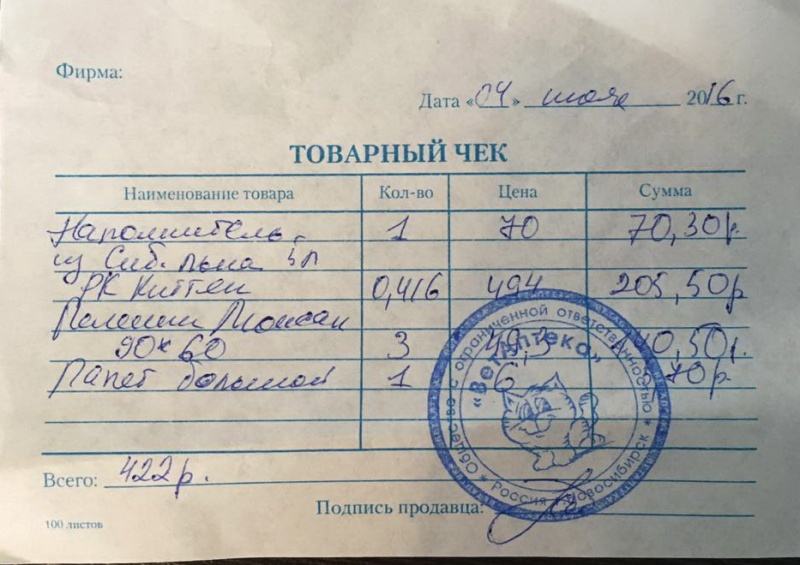 Фирма:
Дата «04» июля 2016 г.
ТОВАРНЫЙ ЧЕК
Наименование товара Кол-во Цена Сумма
Наполнитель 1 70 70,30р.
из Сиб. льна 5л
РК Киттен 0,416 494 205,50р
Пеленки
90×60 3 49,5 40,50р.
Пакет большой 1 6, 70р.
Всего: 422 р.
Подпись продавца:
100 листов
Общество с ограниченной ответственностью
«ВетАптека»
* Россия * Новосибирск *